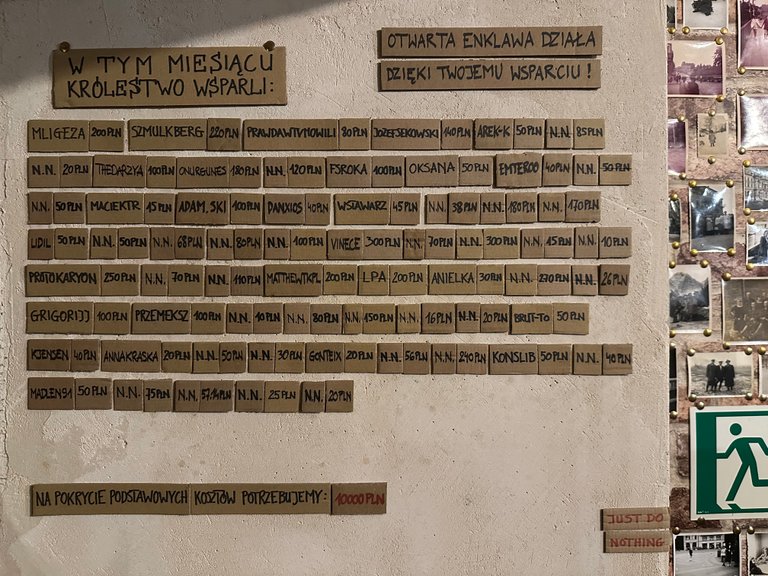 W TYM MIESIĄCU
KRÓLESTWO WSPARLI:
OTWARTA ENKLAWA DZIAŁA
DZIĘKI TWOJEMU WSPARCIU!
MLIGEZA 200 PLN SZMULKBERG 220 PLN PRAWDAWTVMOWILI 80 PLN JOZEFSEKOWSKI 140 PLN AREK-K 50 PLN N.N. 85 PLN
N.N. 20 PLN THEDARZYA 100 PLN ONURGUNES 180 PLN N.N. 120 PLN FSROKA 100 PLN OKSANA 50 PLN EMTEROO 40 PLN N.N. 50 PLN
N.N. 50 PLN MACIEKTR 15 PLN ADAM.SKI 100 PLN DANXIOS 40 PLN WSTAWARZ 45 PLN N.N. 38 PLN N.N. 180 PLN N.N. 170 PLN
LIDIL 50 PLN N.N. 50 PLN N.N. 68 PLN N.N. 80 PLN N.N. 100 PLN VINECE 300 PLN N.N. 70 PLN N.N. 300 PLN N.N. 15 PLN N.N. 10 PLN
PROTOKARYON 250 PLN N.N. 70 PLN N.N. 110 PLN MATTHEWTKPL 200 PLN LPA 200 PLN ANIELKA 30 PLN N.N. 270 PLN N.N. 26 PLN
GRIGORIJJ 100 PLN PRZEMEKSZ 100 PLN N.N. 10 PLN N.N. 80 PLN N.N. 150 PLN N.N. 16 PLN N.N. 20 PLN BRUT-TO 50 PLN
KJENSEN 40 PLN ANNAKRASKA 20 PLN N.N. 50 PLN N.N. 30 PLN GONTEIX 20 PLN N.N. 56 PLN N.N. 240 PLN KONSLIB 50 PLN N.N. 40 PLN
MADLEN91 50 PLN N.N. 75 PLN N.N. 57.14 PLN N.N. 25 PLN N.N. 20 PLN
NA POKRYCIE PODSTAWOWYCH KOSZTÓW POTRZEBUJEMY: 10000 PLN
JUST DO
NOTHING